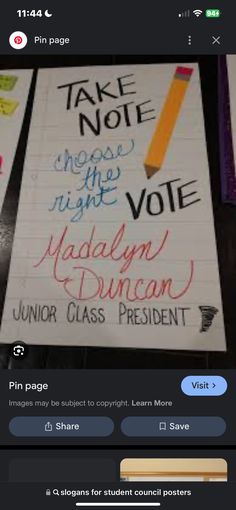 11:44
94
Pin page
TAKE
NOTE
choose
the
right
VOTE
Madalyn
Duncan
JUNIOR CLASS PRESIDENT
Pin page
Visit >
Images may be subject to copyright. Learn More
Share
Save
slogans for student council posters